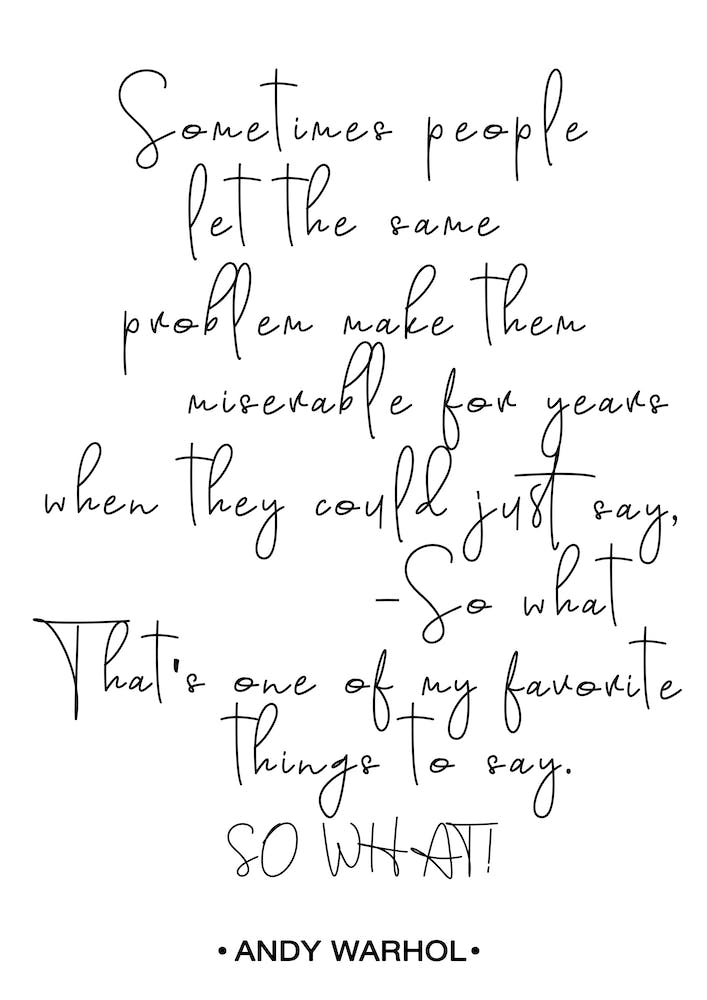 Sometimes people
let the same
problem make them
miserable for years
when they could just say,
-So what
That's one of my favorite
things to say.
SO WHAT!
• ANDY WARHOL •